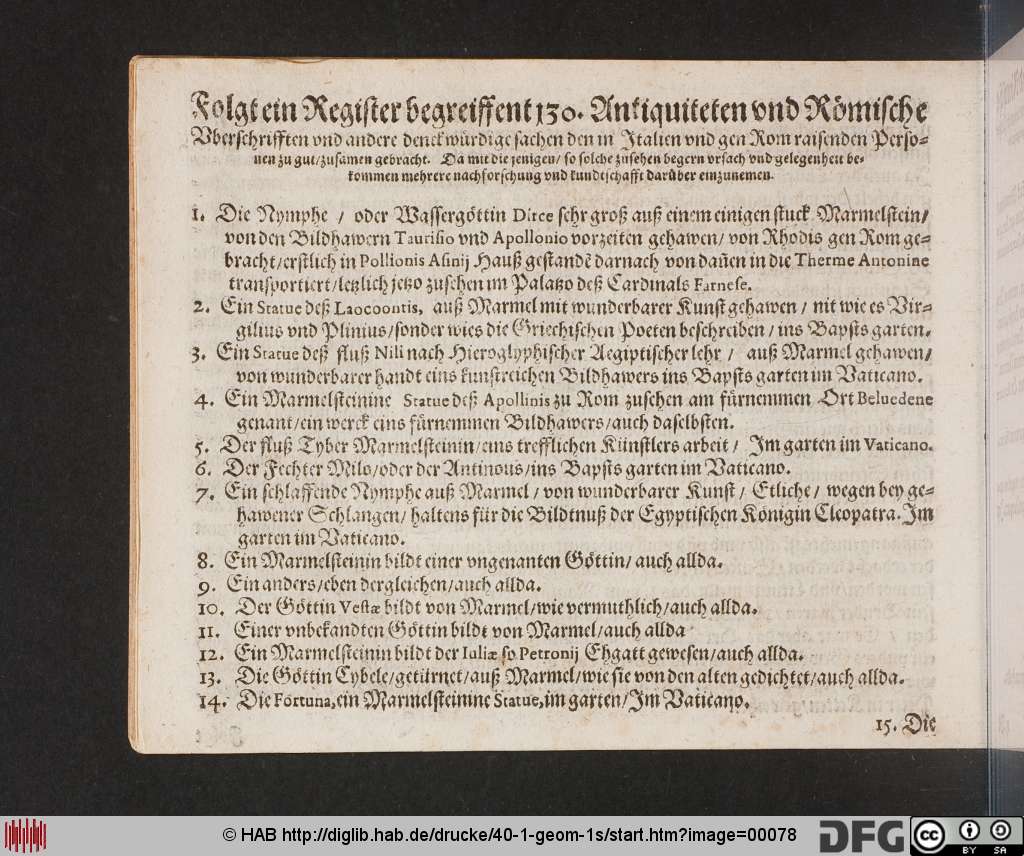 Folgt ein Register begreiffent 130. Antiquiteten vnd Römische
Vberschrifften vnd andere denckwürdige sachen den in Italien vnd gen Rom raisenden Perso-
nen zu gut/zusamen gebracht. Da mit die jenigen/ so solche zusehen begern vrsach vnd gelegenheit be-
kommen mehrere nachforschung vnd kundtschafft darüber einzunemen.
1. Die Nymphe / oder Wassergöttin Dirce sehr groß auß einem einigen stuck Marmelstein/
von den Bildhawern Taurisio vnd Apollonio vorzeiten gehawen/ von Rhodis gen Rom ge-
bracht/erstlich in Pollionis Asinij Hauß gestandē darnach von dañen in die Therme Antonine
transportiert/letzlich jetzo zusehen im Palatzo deß Cardinals Farnese.
2. Ein Statue deß Laocoontis, auß Marmel mit wunderbarer Kunst gehawen / nit wie es Vir-
gilius vnd Plinius/sonder wies die Griechischen Poeten beschreiben / ins Bapsts garten.
3. Ein Statue deß fluß Nili nach Hieroglyphischer Aegiptischer lehr / auß Marmel gehawen/
von wunderbarer handt eins kunstreichen Bildhawers ins Bapsts garten im Vaticano.
4. Ein Marmelsteinine Statue deß Apollinis zu Rom zusehen am fürnemmen Ort Beluedene
genant/ein werck eins fürnemmen Bildhawers/auch daselbsten.
5. Der fluß Tyber Marmelsteinin/eins trefflichen Künstlers arbeit / Im garten im Vaticano.
6. Der Fechter Milo/oder der Antinous/ins Bapsts garten im Vaticano.
7. Ein schlaffende Nymphe auß Marmel / von wunderbarer Kunst / Etliche / wegen bey ge-
hawener Schlangen/ haltens für die Bildtnuß der Egyptischen Königin Cleopatra. Im
garten im Vaticano.
8. Ein Marmelsteinin bildt einer vngenanten Göttin/ auch allda.
9. Ein anders/eben dergleichen/auch allda.
10. Der Göttin Vestæ bildt von Marmel/wie vermuthlich/auch allda.
11. Einer vnbekandten Göttin bildt von Marmel/auch allda
12. Ein Marmelsteinin bildt der Iuliæ so Petronij Ehgatt gewesen/auch allda.
13. Die Göttin Cybele/getürnet/auß Marmel/wie sie von den alten gedichtet/auch allda.
14. Die Fortuna,ein Marmelsteinine Statue,im garten/Im Vaticano.
15. Die
© HAB http://diglib.hab.de/drucke/40-1-geom-1s/start.htm?image=00078
DFG
cc BY SA